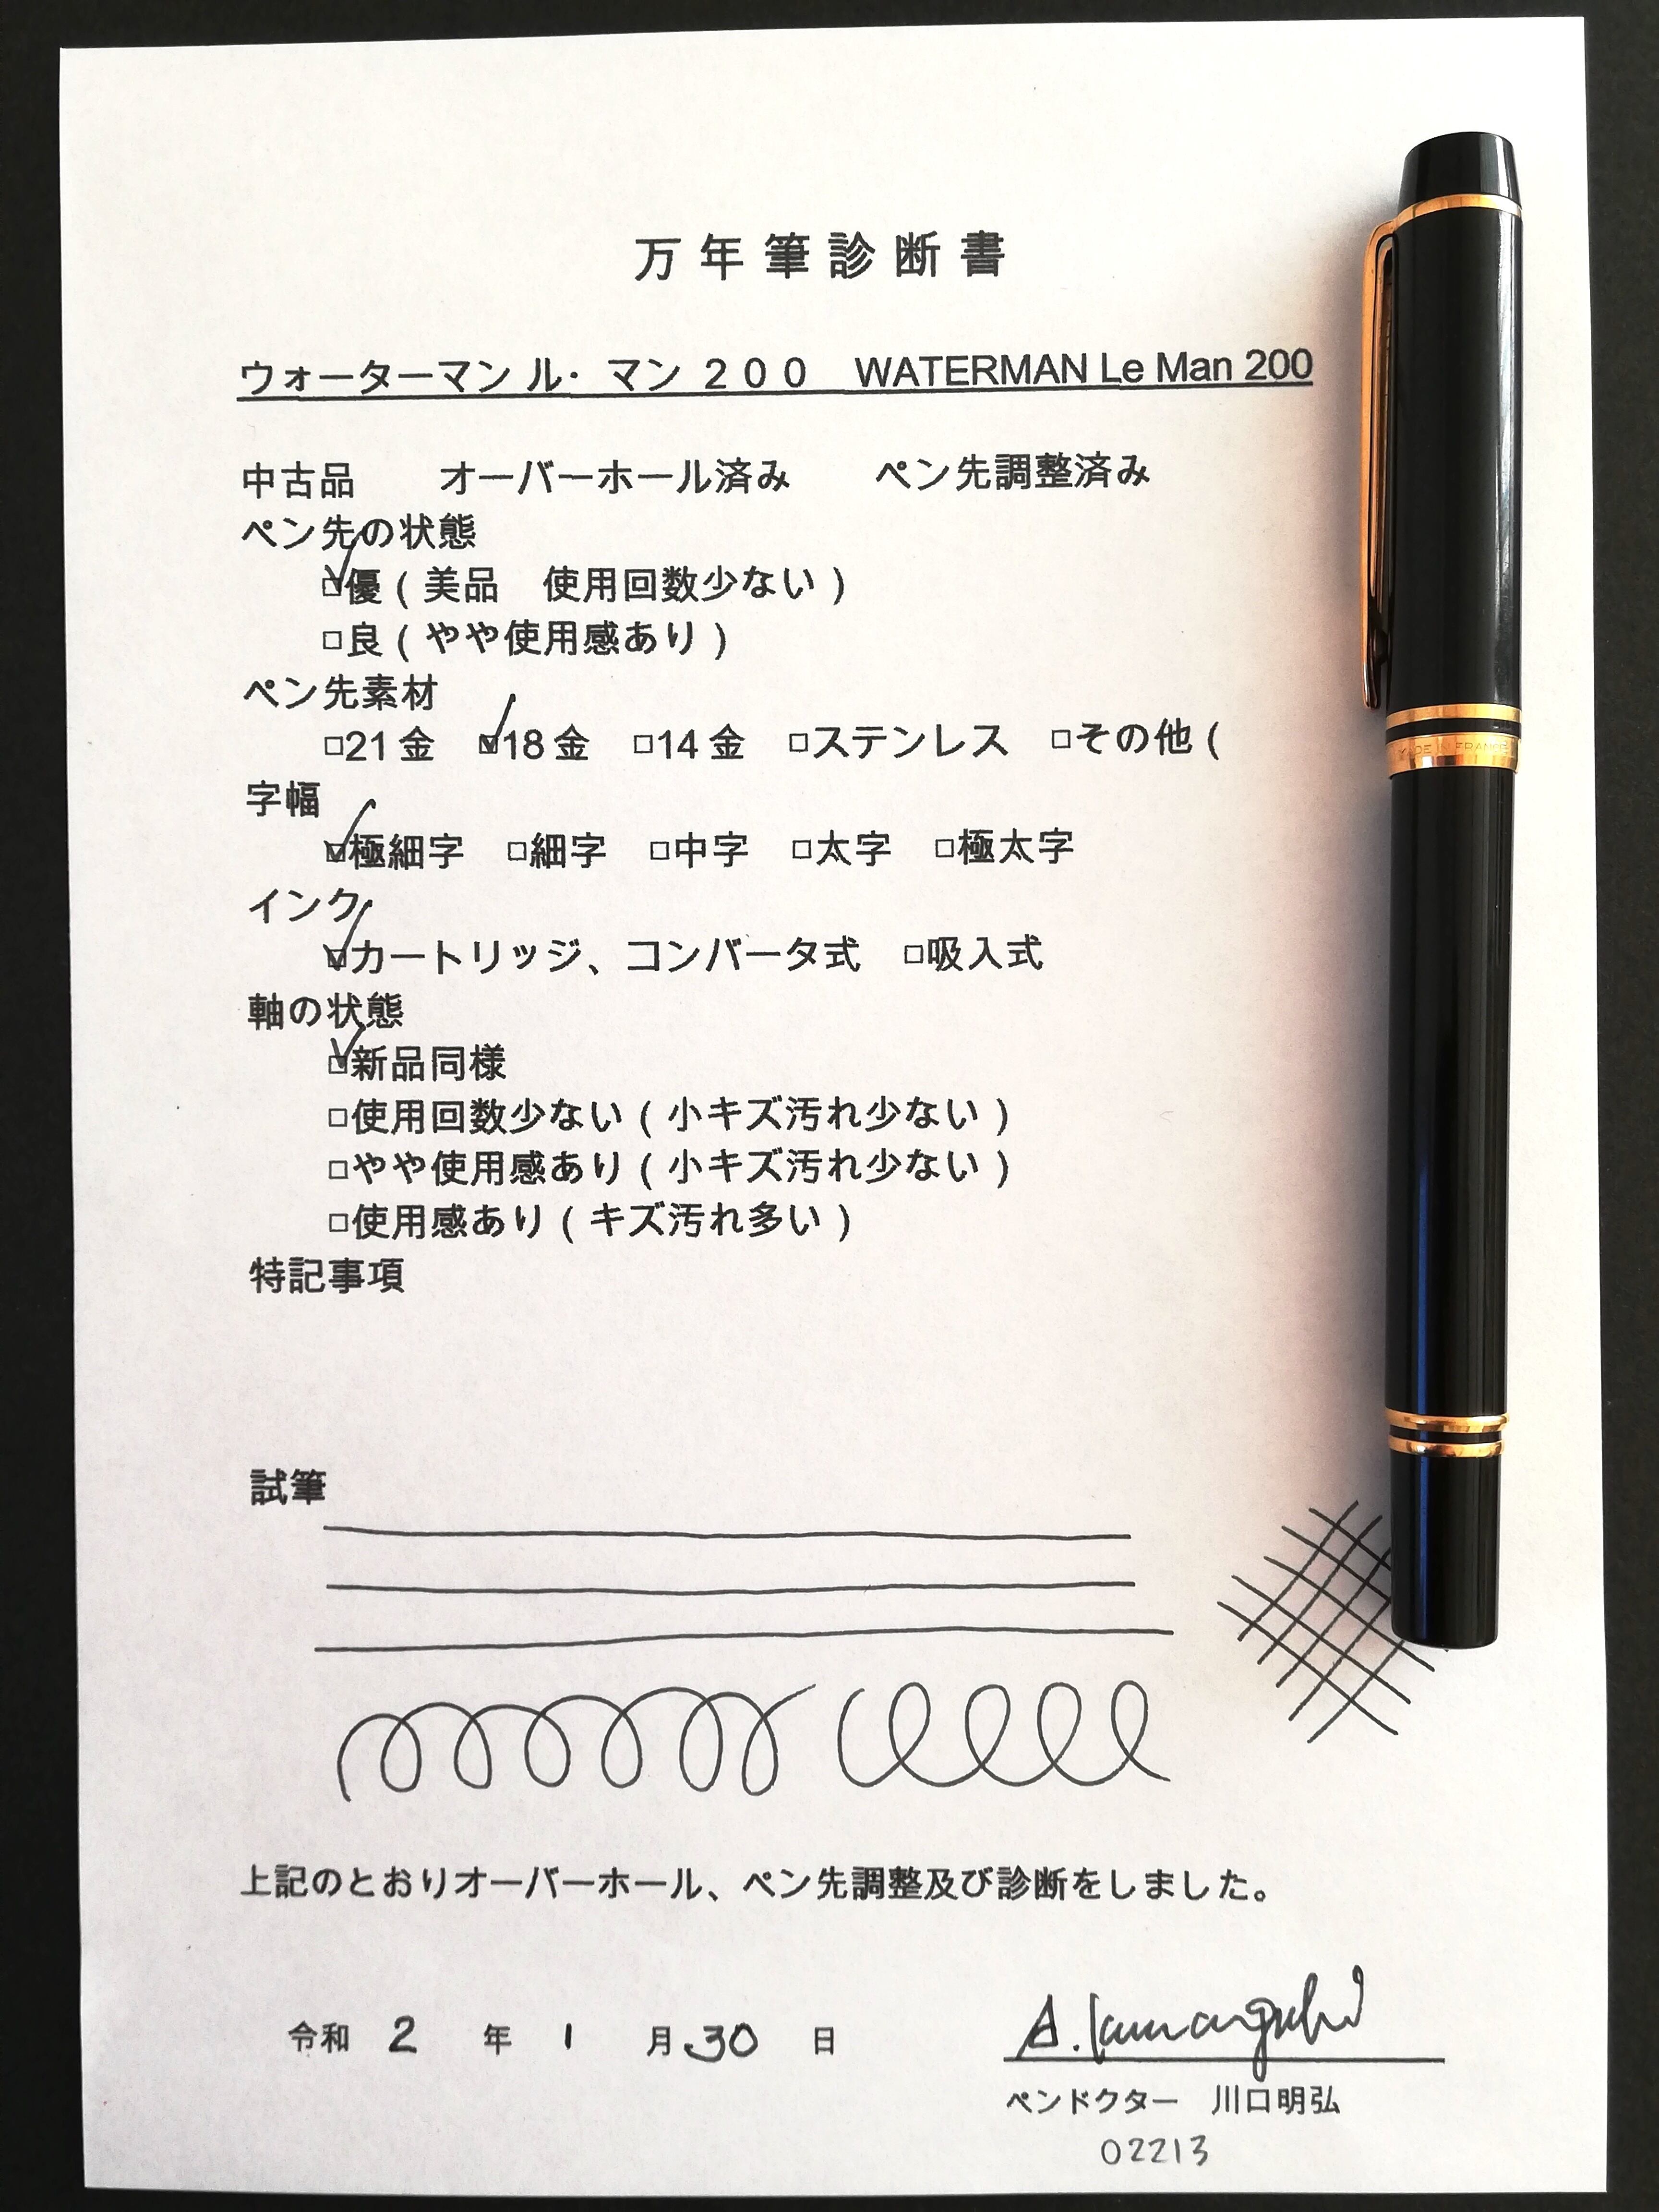 万年筆診断書
ウォーターマン ル・マン ２００　WATERMAN Le Man 200
中古品　　オーバーホール済み　　ペン先調整済み
ペン先の状態
☑優（美品　使用回数少ない）
□良（やや使用感あり）
ペン先素材
□21金　☑18金　□14金　□ステンレス　□その他（
字幅
☑極細字　□細字　□中字　□太字　□極太字
インク
☑カートリッジ、コンバータ式　□吸入式
軸の状態
☑新品同様
□使用回数少ない（小キズ汚れ少ない）
□やや使用感あり（小キズ汚れ少ない）
□使用感あり（キズ汚れ多い）
特記事項
試筆
上記のとおりオーバーホール、ペン先調整及び診断をしました。
令和 2 年 1 月 30 日
A. Kawaguchi
ペンドクター　川口明弘
02213
MADE IN FRANCE